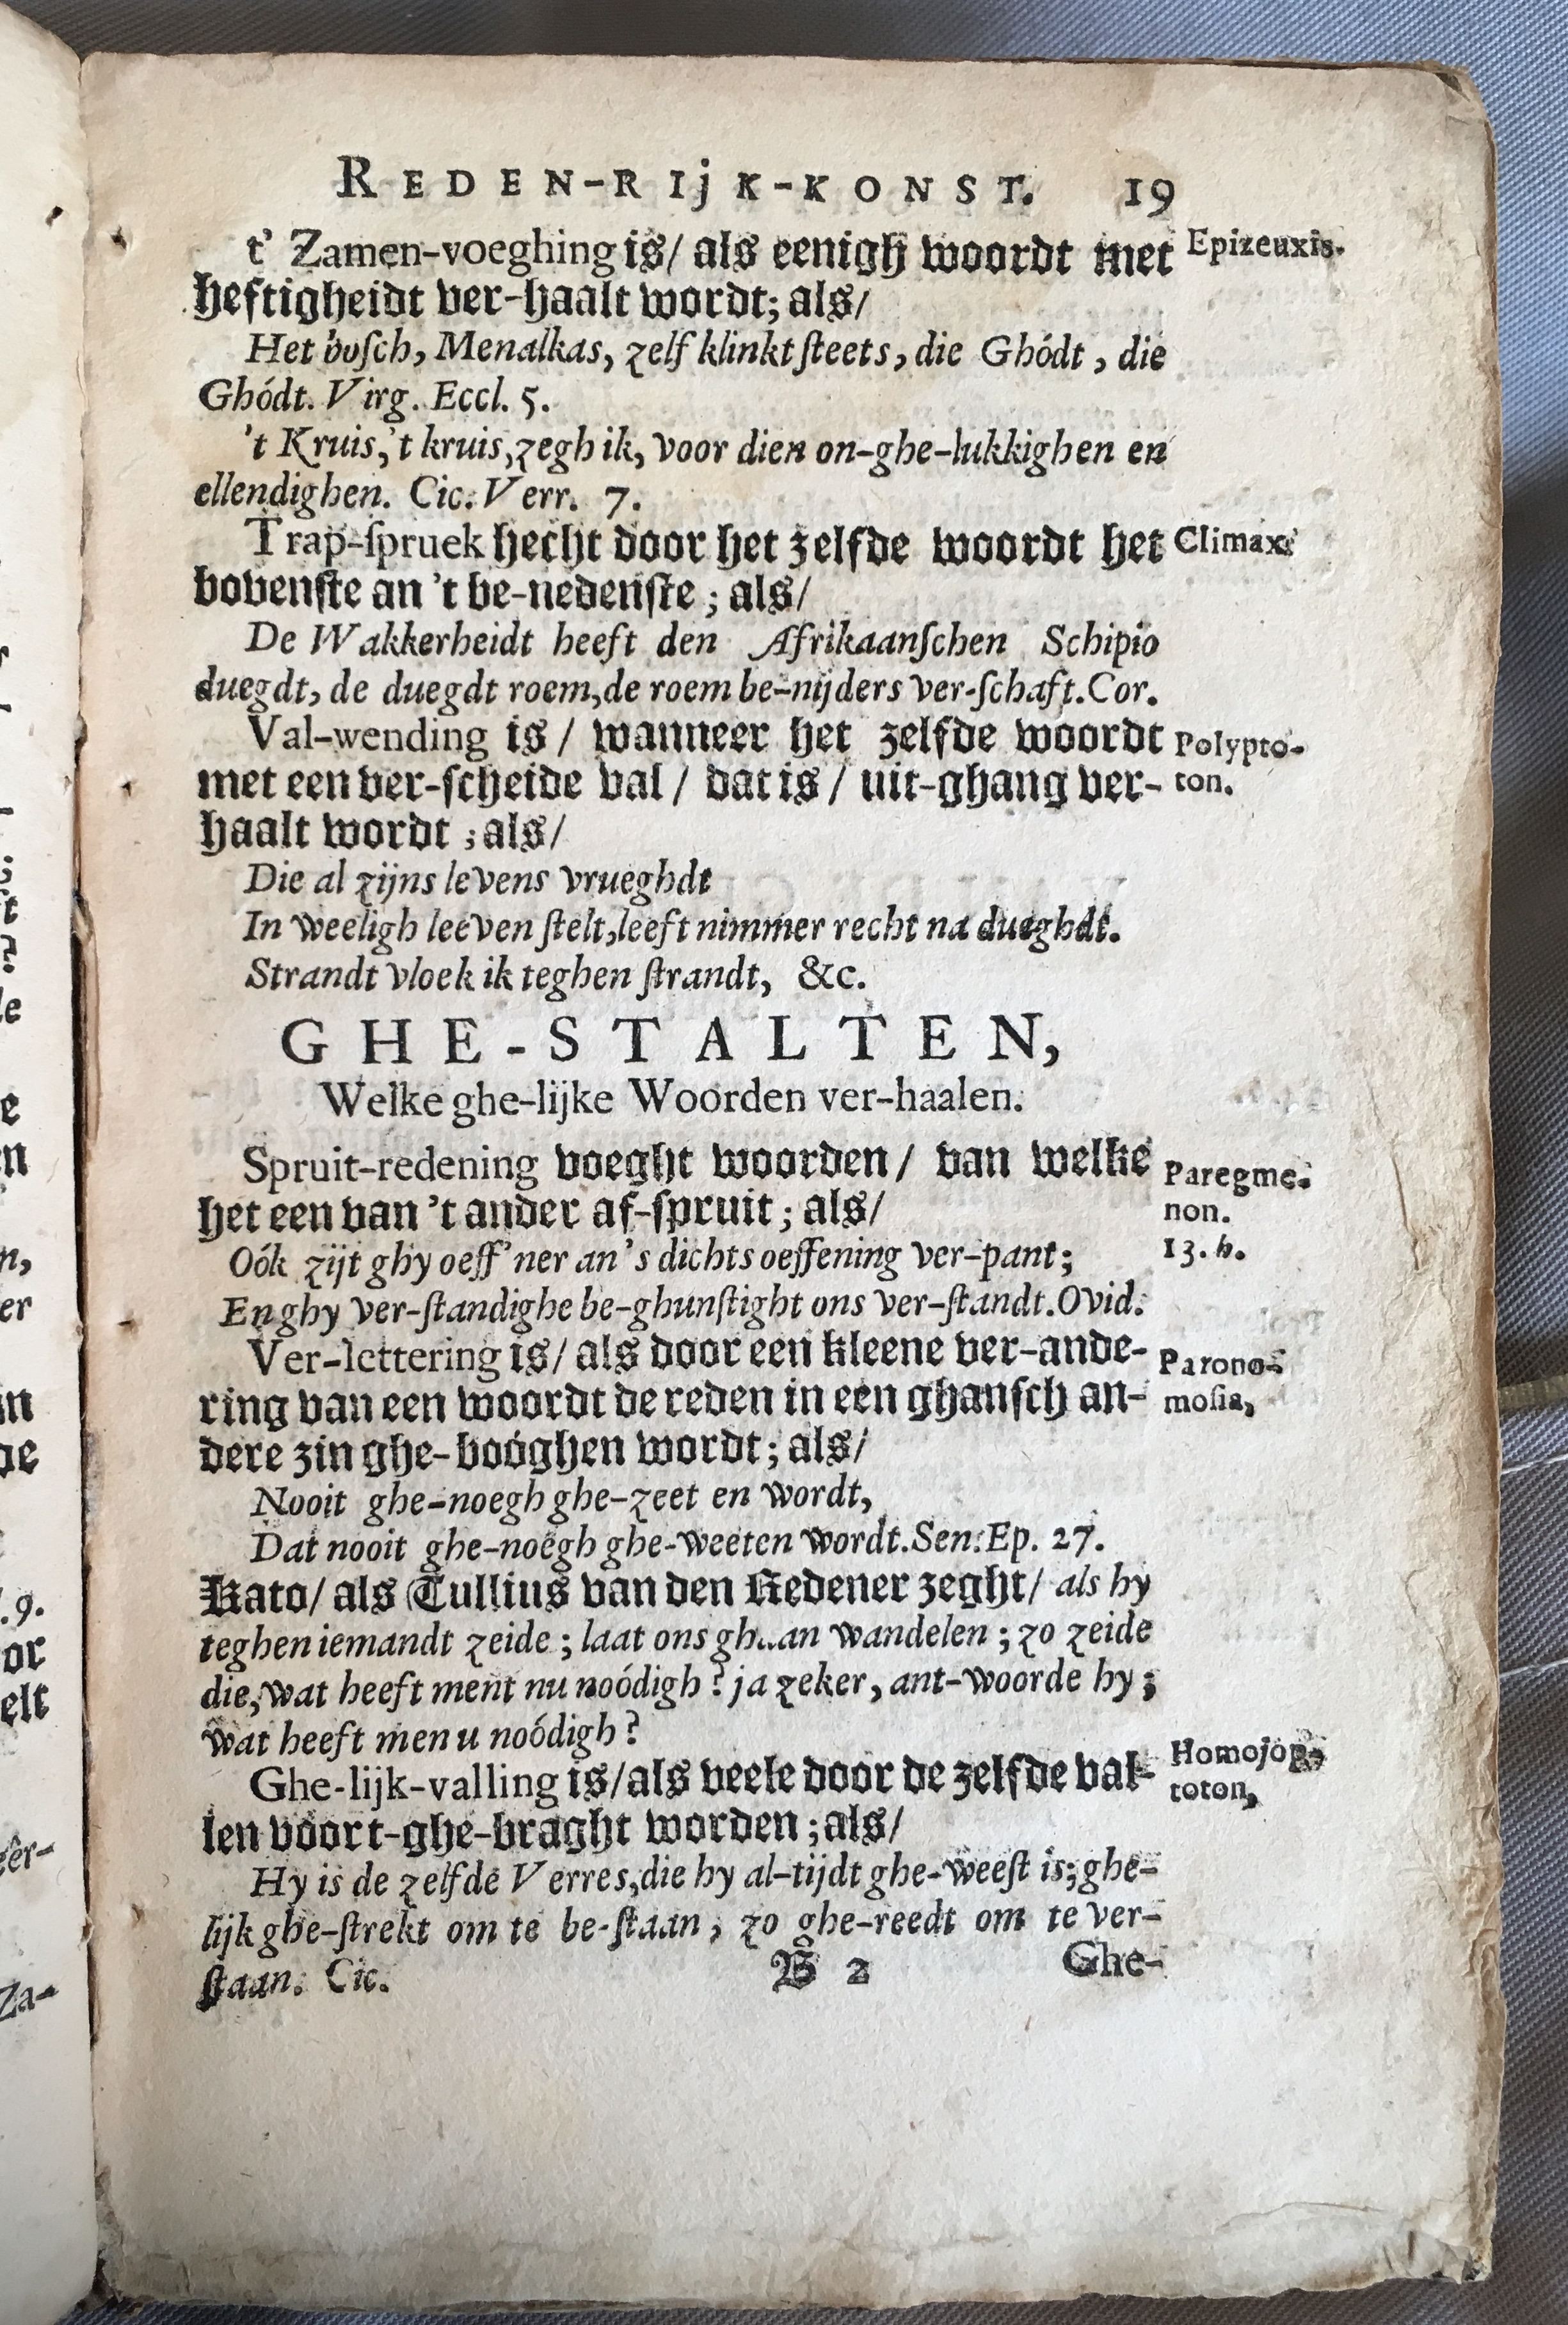 REDEN-RIjK-KONST. 19
t' Zamen-voeghing is/ als eenigh woordt met Epizeuxis.
heftigheidt ver-haalt wordt; als/
Het bosch, Menalkas, zelf klinkt steets, die Ghódt, die
Ghódt. Virg. Eccl. 5.
't Kruis, 't kruis, zegh ik, voor dien on-ghe-lukkighen en
ellendighen. Cic. Verr. 7.
Trap-spruek hecht door het zelfde woordt het Climax.
bovenste an 't be-nedenste; als/
De Wakkerheidt heeft den Afrikaanschen Schipio
duegdt, de duegdt roem, de roem be-nijders ver-schaft. Cor.
Val-wending is/ wanneer het zelfde woordt Polypto-
met een ver-scheide val/ dat is/ uit-ghang ver- ton.
haalt wordt; als/
Die al zijns levens vrueghdt
In weeligh leeven stelt, leeft nimmer recht na dueghdt.
Strandt vloek ik teghen strandt, &c.
GHE-STALTEN,
Welke ghe-lijke Woorden ver-haalen.
Spruit-redening voeght woorden/ van welke Paregme-
het een van 't ander af-spruit; als/ non.
Oók zijt ghy oeff'ner an's dichts oeffening ver-pant; 13. h.
En ghy ver-standighe be-ghunstight ons ver-standt. Ovid.
Ver-lettering is/ als door een kleene ver-ande- Parono-
ring van een woordt de reden in een ghansch an- mosia,
dere zin ghe-boóghen wordt; als/
Nooit ghe-noegh ghe-zeet en wordt,
Dat nooit ghe-noegh ghe-weeten wordt. Sen. Ep. 27.
Kato/ als Tullius van den Redener zeght/ als hy
teghen iemandt zeide; laat ons ghaan wandelen; zo zeide
die, wat heeft ment nu noódigh? ja zeker, ant-woorde hy;
wat heeft men u noódigh?
Ghe-lijk-valling is/ als veele door de zelfde val- Homojop-
len voort-ghe-braght worden; als/ toton,
Hy is de zelfde Verres, die hy al-tijdt ghe-weest is; ghe-
lijk ghe-strekt om te be-staan, zo ghe-reedt om te ver-
staan. Cic. B 2 Ghe-